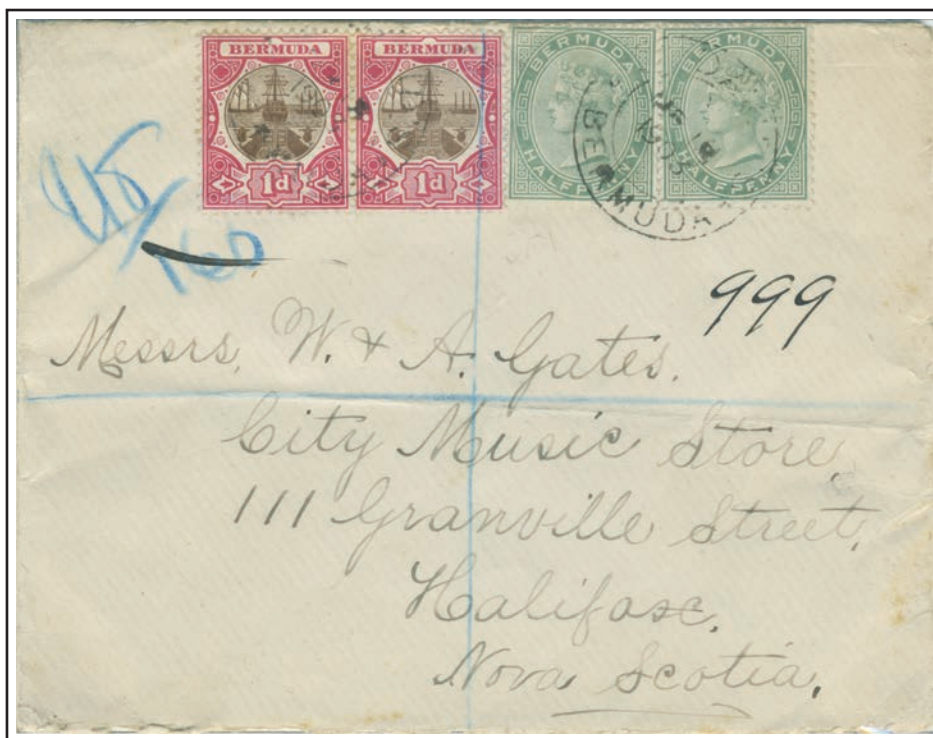 BERMUDA BERMUDA BERMUDA BERMUDA
1d 1d HALFPENNY HALFPENNY
BERMUDA
1903
160
999
Messrs, W. & A. Gates.
City Music Store,
111 Granville Street,
Halifax,
Nova Scotia.